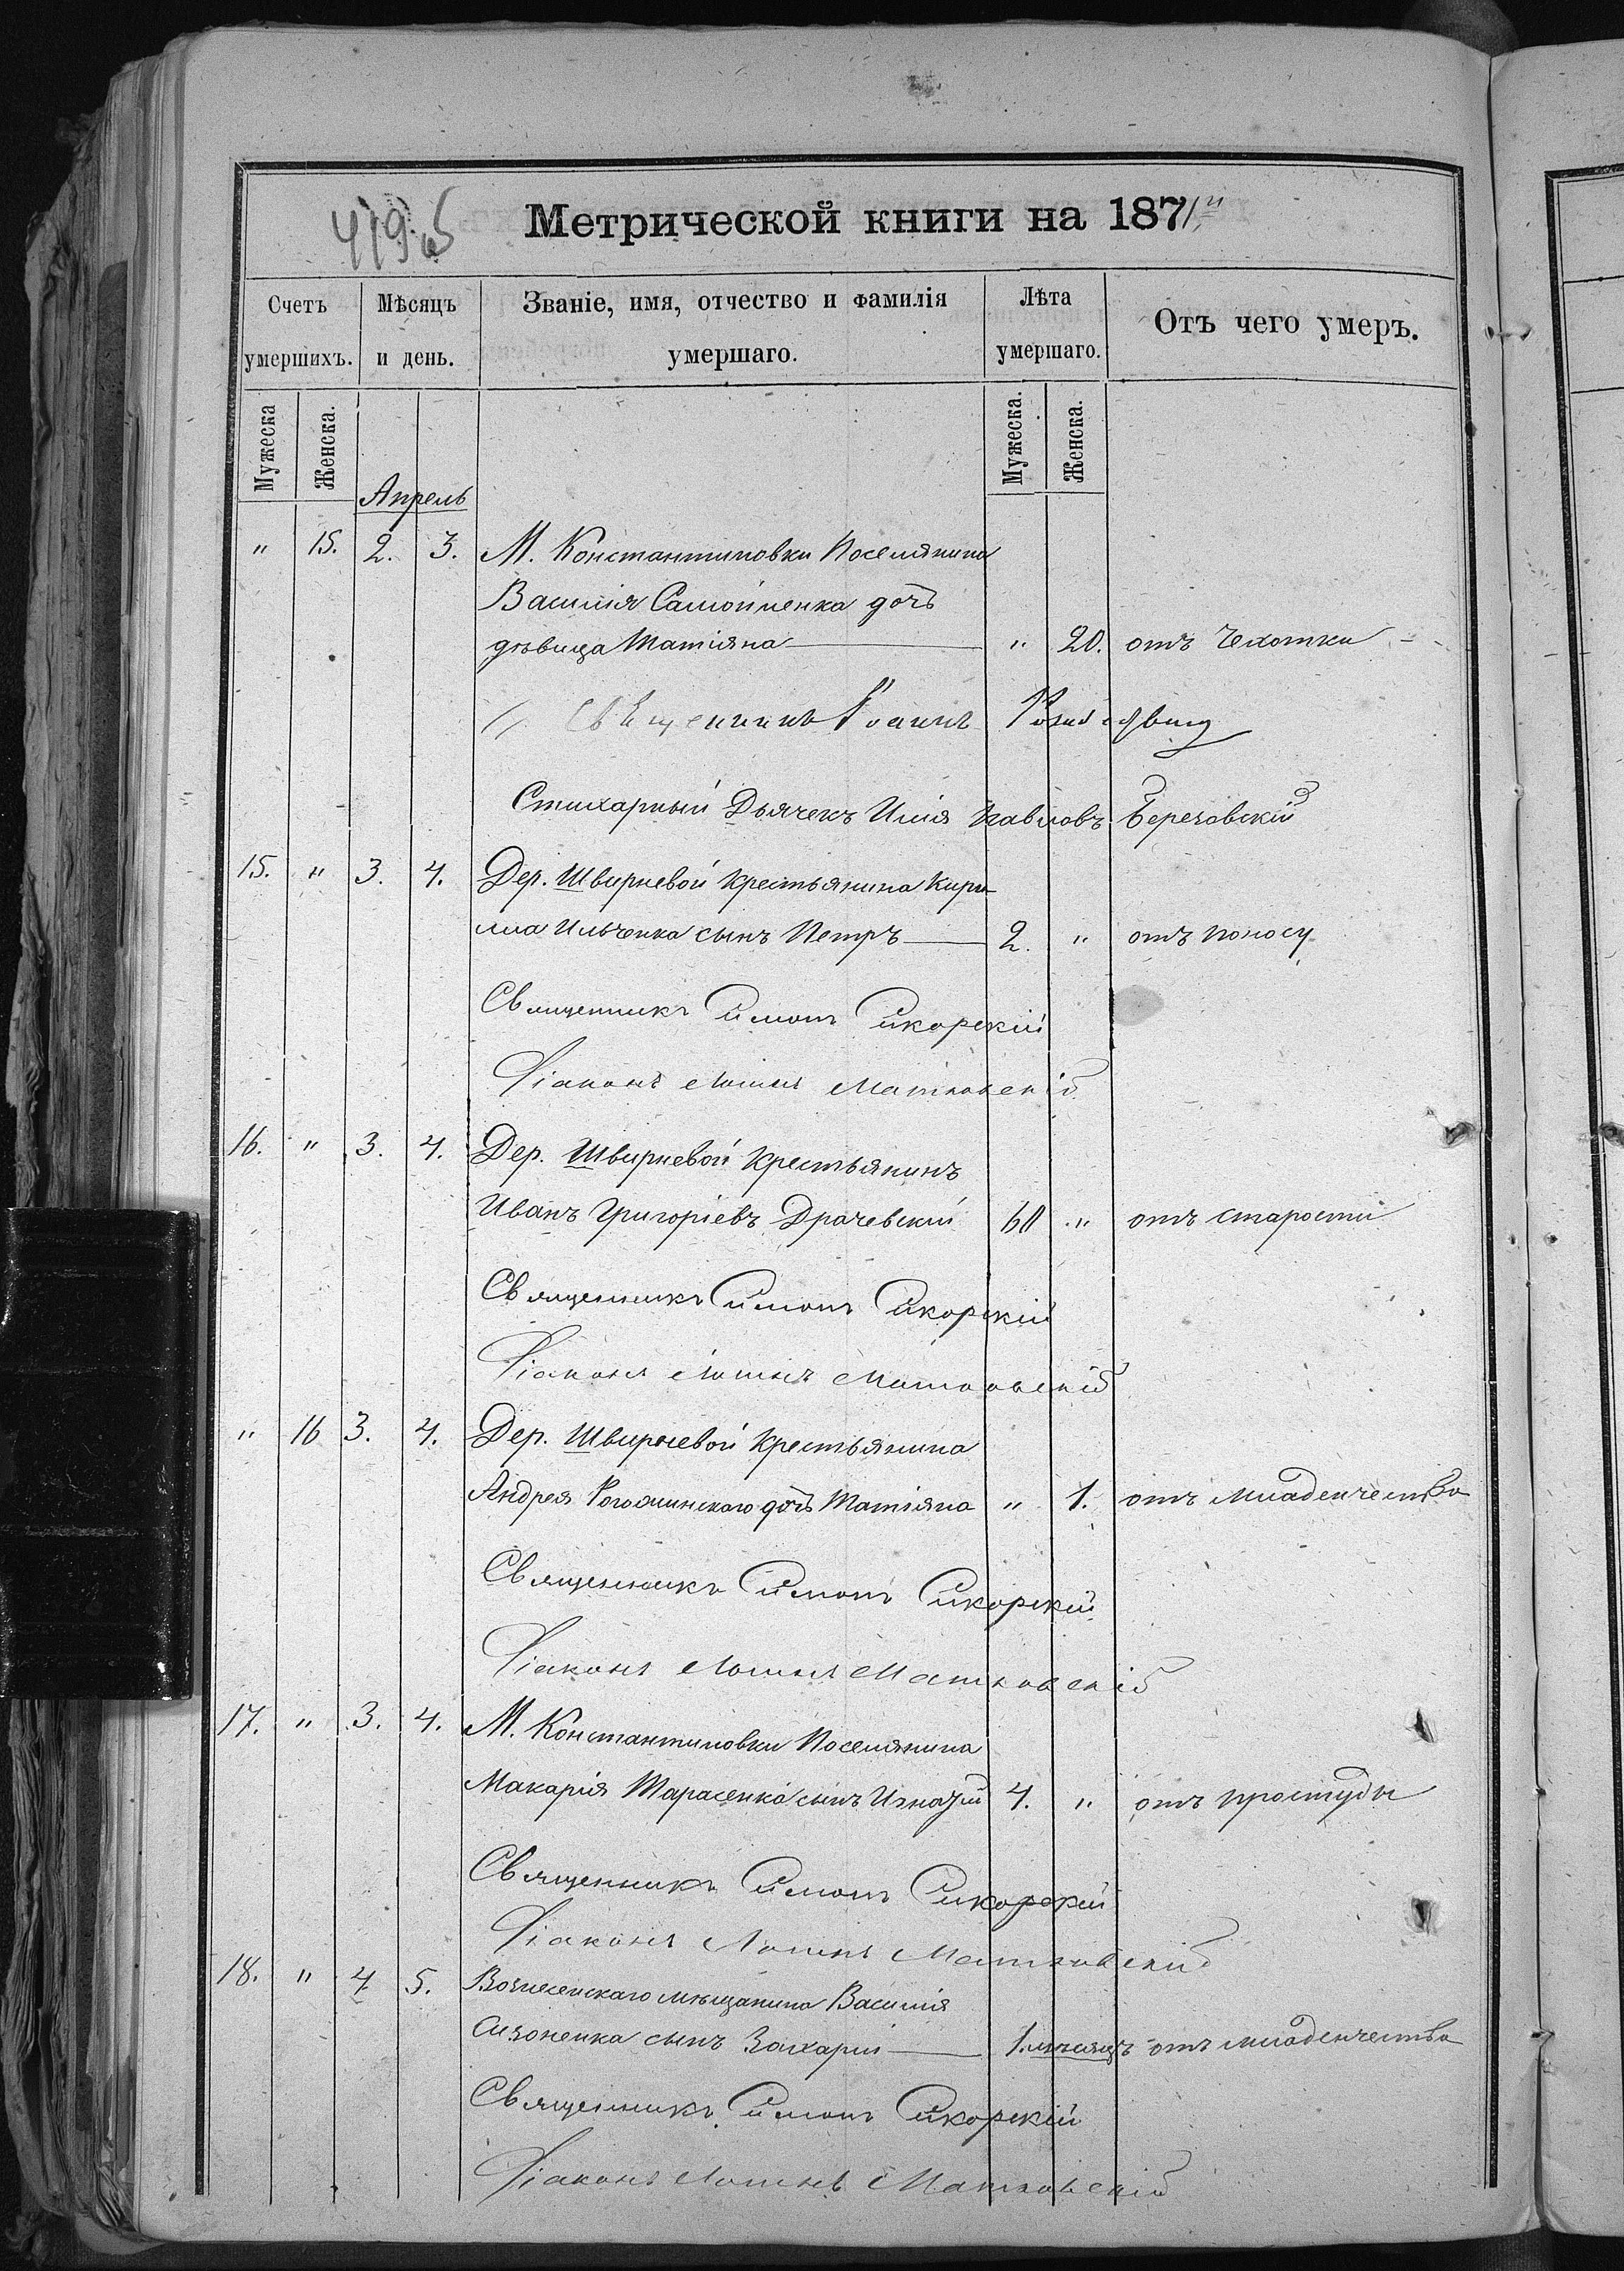 Метрической книги на 1871
Счетъ умершихъ. Мѣсяцъ и день. Званіе, имя, отчество и фамилія умершаго. Лѣта умершаго. Отъ чего умеръ.
Мужеска Женска. Мужеска. Женска.
Апрель
" 15. 2. 3. М. Константиновки Поселянина
Василія Самойленка дочь
дѣвица Татіяна " 20. отъ Чехотки
Священникъ Іоаннъ
Стихарный Дьячекъ Илія Павловъ Березовскій
15. " 3. 4. Дер. Швирневой Крестьянина Кири-
лла Ильченка сынъ Петръ 2. " отъ поносу
Священникъ Симонъ Сикорскій
Діаконъ Матковскій
16. " 3. 4. Дер. Швирневой Крестьянинъ
Иванъ Григоріевъ Драчевскій 60 " отъ старости
Священникъ Симонъ Сикорскій
Діаконъ Матковскій
" 16 3. 4. Дер. Швирневой Крестьянина
Андрея дочь Татіяна " 1. отъ младенчества
Священникъ Симонъ Сикорскій
Діаконъ Матковскій
17. " 3. 4. М. Константиновки Поселянина
Макарія Тарасенка сынъ Игнатій 4. " отъ простуды
Священникъ Симонъ Сикорскій
Діаконъ Матковскій
18. " 4 5. Вознесенскаго мѣщанина Василія
Сизоненка сынъ Захарій 1. мѣсяцъ отъ младенчества
Священникъ Симонъ Сикорскій
Діаконъ Матковскій